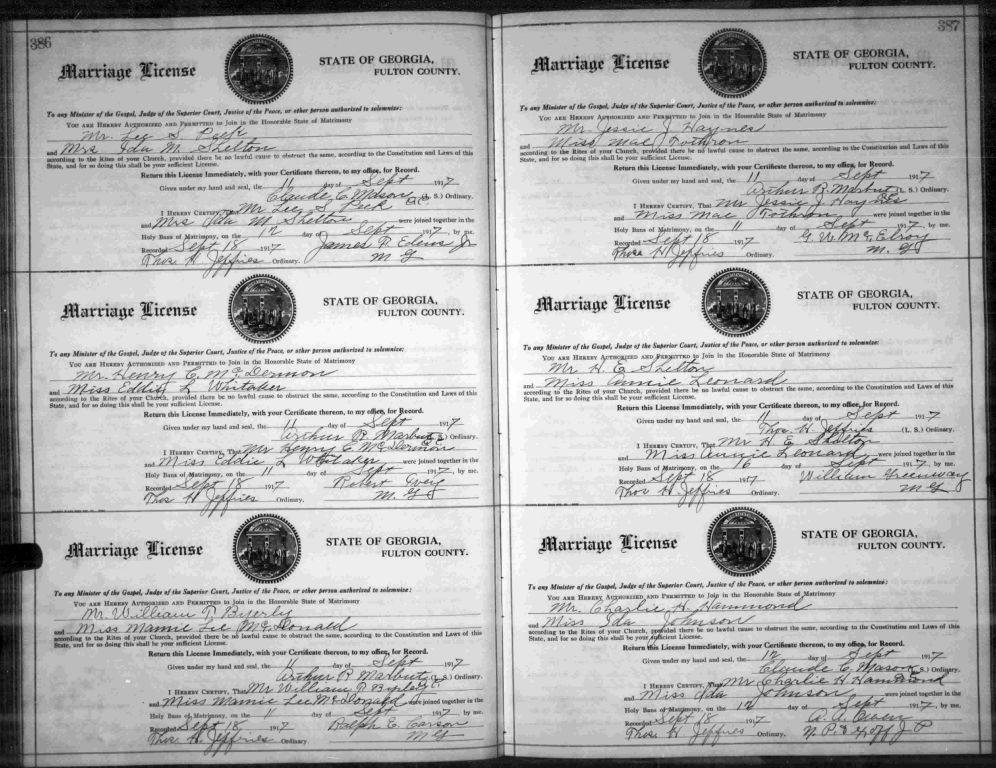 386
Marriage License
STATE OF GEORGIA,
FULTON COUNTY.
To any Minister of the Gospel, Judge of the Superior Court, Justice of the Peace, or other person authorized to solemnize:
YOU ARE HEREBY AUTHORIZED AND PERMITTED to Join in the Honorable State of Matrimony
Mr. Lee S. Peek
and Mrs Ida M. Shelton
according to the Rites of your Church, provided there be no lawful cause to obstruct the same, according to the Constitution and Laws of this
State, and for so doing this shall be your sufficient License.
Return this License Immediately, with your Certificate thereon, to my office, for Record.
Given under my hand and seal, the 11 day of Sept 1917
Claude C. Mason (L. S.) Ordinary.
I HEREBY CERTIFY, That Mr Lee S. Peek
and Mrs Ida M Shelton were joined together in the
Holy Bans of Matrimony, on the 12 day of Sept 1917, by me.
Recorded Sept 18 1917 James P. Edens Jr
Thos H. Jeffries Ordinary. M G
Marriage License
STATE OF GEORGIA,
FULTON COUNTY.
To any Minister of the Gospel, Judge of the Superior Court, Justice of the Peace, or other person authorized to solemnize:
YOU ARE HEREBY AUTHORIZED AND PERMITTED to Join in the Honorable State of Matrimony
Mr. Henry C. McDermon
and Miss Eddie L Whitaker
according to the Rites of your Church, provided there be no lawful cause to obstruct the same, according to the Constitution and Laws of this
State, and for so doing this shall be your sufficient License.
Return this License Immediately, with your Certificate thereon, to my office, for Record.
Given under my hand and seal, the 11 day of Sept 1917
Arthur R. Marbut (L. S.) Ordinary.
I HEREBY CERTIFY, That Mr Henry C McDermon
and Miss Eddie L Whitaker were joined together in the
Holy Bans of Matrimony, on the 11 day of Sept 1917, by me.
Recorded Sept 18 1917 Robert Craig
Thos H Jeffries Ordinary. M. G
Marriage License
STATE OF GEORGIA,
FULTON COUNTY.
To any Minister of the Gospel, Judge of the Superior Court, Justice of the Peace, or other person authorized to solemnize:
YOU ARE HEREBY AUTHORIZED AND PERMITTED to Join in the Honorable State of Matrimony
Mr. William P. Byerly
and Miss Mamie Lee McDonald
according to the Rites of your Church, provided there be no lawful cause to obstruct the same, according to the Constitution and Laws of this
State, and for so doing this shall be your sufficient License.
Return this License Immediately, with your Certificate thereon, to my office, for Record.
Given under my hand and seal, the 11 day of Sept 1917
Arthur R Marbut (L. S.) Ordinary.
I HEREBY CERTIFY, That Mr William P.
and Miss Mamie Lee McDonald were joined together in the
Holy Bans of Matrimony, on the 11 day of Sept 1917, by me.
Recorded Sept 18 1917 Ralph E. Carson
Thos H. Jeffries Ordinary. M G
387
Marriage License
STATE OF GEORGIA,
FULTON COUNTY.
To any Minister of the Gospel, Judge of the Superior Court, Justice of the Peace, or other person authorized to solemnize:
YOU ARE HEREBY AUTHORIZED AND PERMITTED to Join in the Honorable State of Matrimony
Mr Jessie J. Haynes
and Miss Mae Tothron
according to the Rites of your Church, provided there be no lawful cause to obstruct the same, according to the Constitution and Laws of this
State, and for so doing this shall be your sufficient License.
Return this License Immediately, with your Certificate thereon, to my office, for Record.
Given under my hand and seal, the 11 day of Sept 1917
Arthur R. Marbut (L. S.) Ordinary.
I HEREBY CERTIFY, That Mr Jessie J Haynes
and Miss Mae Tothron were joined together in the
Holy Bans of Matrimony, on the 11 day of Sept 1917, by me.
Recorded Sept 18 1917 G. W. McElroy
Thos H Jeffries Ordinary. M. G
Marriage License
STATE OF GEORGIA,
FULTON COUNTY.
To any Minister of the Gospel, Judge of the Superior Court, Justice of the Peace, or other person authorized to solemnize:
YOU ARE HEREBY AUTHORIZED AND PERMITTED to Join in the Honorable State of Matrimony
Mr H. E. Shelton
and Miss Annie Leonard
according to the Rites of your Church, provided there be no lawful cause to obstruct the same, according to the Constitution and Laws of this
State, and for so doing this shall be your sufficient License.
Return this License Immediately, with your Certificate thereon, to my office, for Record.
Given under my hand and seal, the 11 day of Sept 1917
Thos. H. Jeffries (L. S.) Ordinary.
I HEREBY CERTIFY, That Mr H. E Shelton
and Miss Annie Leonard were joined together in the
Holy Bans of Matrimony, on the 16 day of Sept 1917, by me.
Recorded Sept 18 1917 William Greenway
Thos H. Jeffries Ordinary. M G
Marriage License
STATE OF GEORGIA,
FULTON COUNTY.
To any Minister of the Gospel, Judge of the Superior Court, Justice of the Peace, or other person authorized to solemnize:
YOU ARE HEREBY AUTHORIZED AND PERMITTED to Join in the Honorable State of Matrimony
Mr. Charlie H. Hammond
and Miss Ida Johnson
according to the Rites of your Church, provided there be no lawful cause to obstruct the same, according to the Constitution and Laws of this
State, and for so doing this shall be your sufficient License.
Return this License Immediately, with your Certificate thereon, to my office, for Record.
Given under my hand and seal, the 12 day of Sept 1917
Claude C. Mason (L. S.) Ordinary.
I HEREBY CERTIFY, That Mr Charlie H Hammond
and Miss Ida Johnson were joined together in the
Holy Bans of Matrimony, on the 12 day of Sept 1917, by me.
Recorded Sept 18 1917
Thos H Jeffries Ordinary. N. P. & Ex off J P